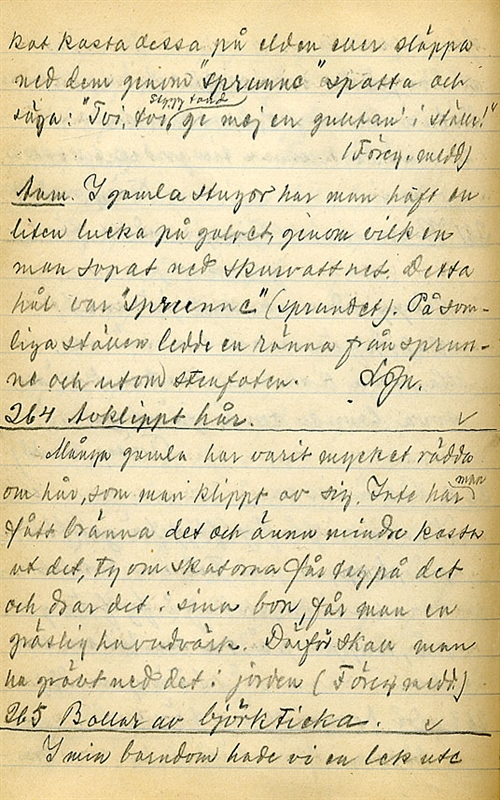 kat kasta dessa på elden eller släppa
ned dem genom "sprunne" spotta och
säga: "Tvi, tvi, ge mej en gulltan' i ställe!"
(Föreg. medd)
Anm. I gamla stugor har man haft en
liten lucka på golvet, genom vilken
man sopat ned skurvattnet. Detta
hål var "sprunne" (sprundet). På som-
liga ställen ledde en ränna från sprun-
ne och utom stenfoten.
264 Avklippt hår.
Många gamla har varit mycket rädda
om hår, som man klippt av sig. Inte har man
fått bränna det och ännu mindre kasta
ut det, ty om skatorna får tag på det
och drar det i sina bon, får man en
gräslig huvudvärk. Därför skall man
ha grävt ned det i jorden (Föreg medd.)
265 Bollar av björkticka.
I min barndom hade vi en lek ute